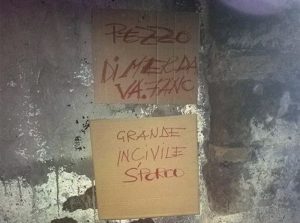 PEZZO
Di MERDA
VA.FANO
GRANDE
INCIVILE
SPORCO